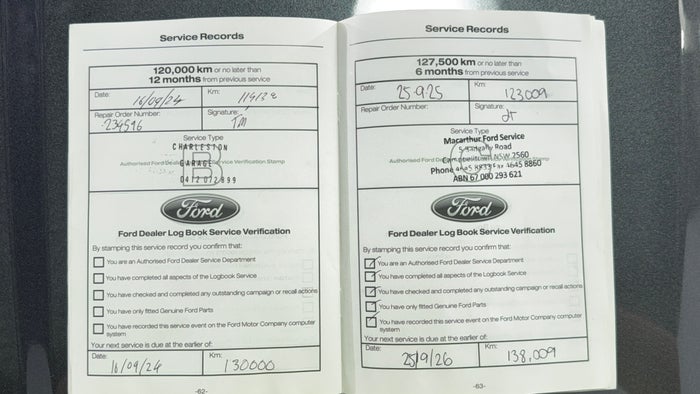 Service Records
120,000 km or no later than
12 months from previous service
Date: 16/09/24 Km:
Repair Order Number: 234546 Signature: TM
Service Type
CHARLESTON
B
Authorised Ford Dealer GARAGE Service Verification Stamp
0412 072 899
Ford
Ford Dealer Log Book Service Verification
By stamping this service record you confirm that:
You are an Authorised Ford Dealer Service Department
You have completed all aspects of the Logbook Service
You have checked and completed any outstanding campaign or recall actions
You have only fitted Genuine Ford Parts
You have recorded this service event on the Ford Motor Company computer
system
Your next service is due at the earlier of:
Date: 16/09/24 Km: 130000
-62-
Service Records
127,500 km or no later than
6 months from previous service
Date: 25-9-25 Km: 123009
Repair Order Number: Signature:
Service Type
Macarthur Ford Service
Road
Authorised Ford Campbelltown NSW 2560 Stamp
Phone 4645 8860
ABN 67 000 293 621
Ford
Ford Dealer Log Book Service Verification
By stamping this service record you confirm that:
You are an Authorised Ford Dealer Service Department
You have completed all aspects of the Logbook Service
You have checked and completed any outstanding campaign or recall actions
You have only fitted Genuine Ford Parts
You have recorded this service event on the Ford Motor Company computer
system
Your next service is due at the earlier of:
Date: 25/9/26 Km: 138,009
-63-